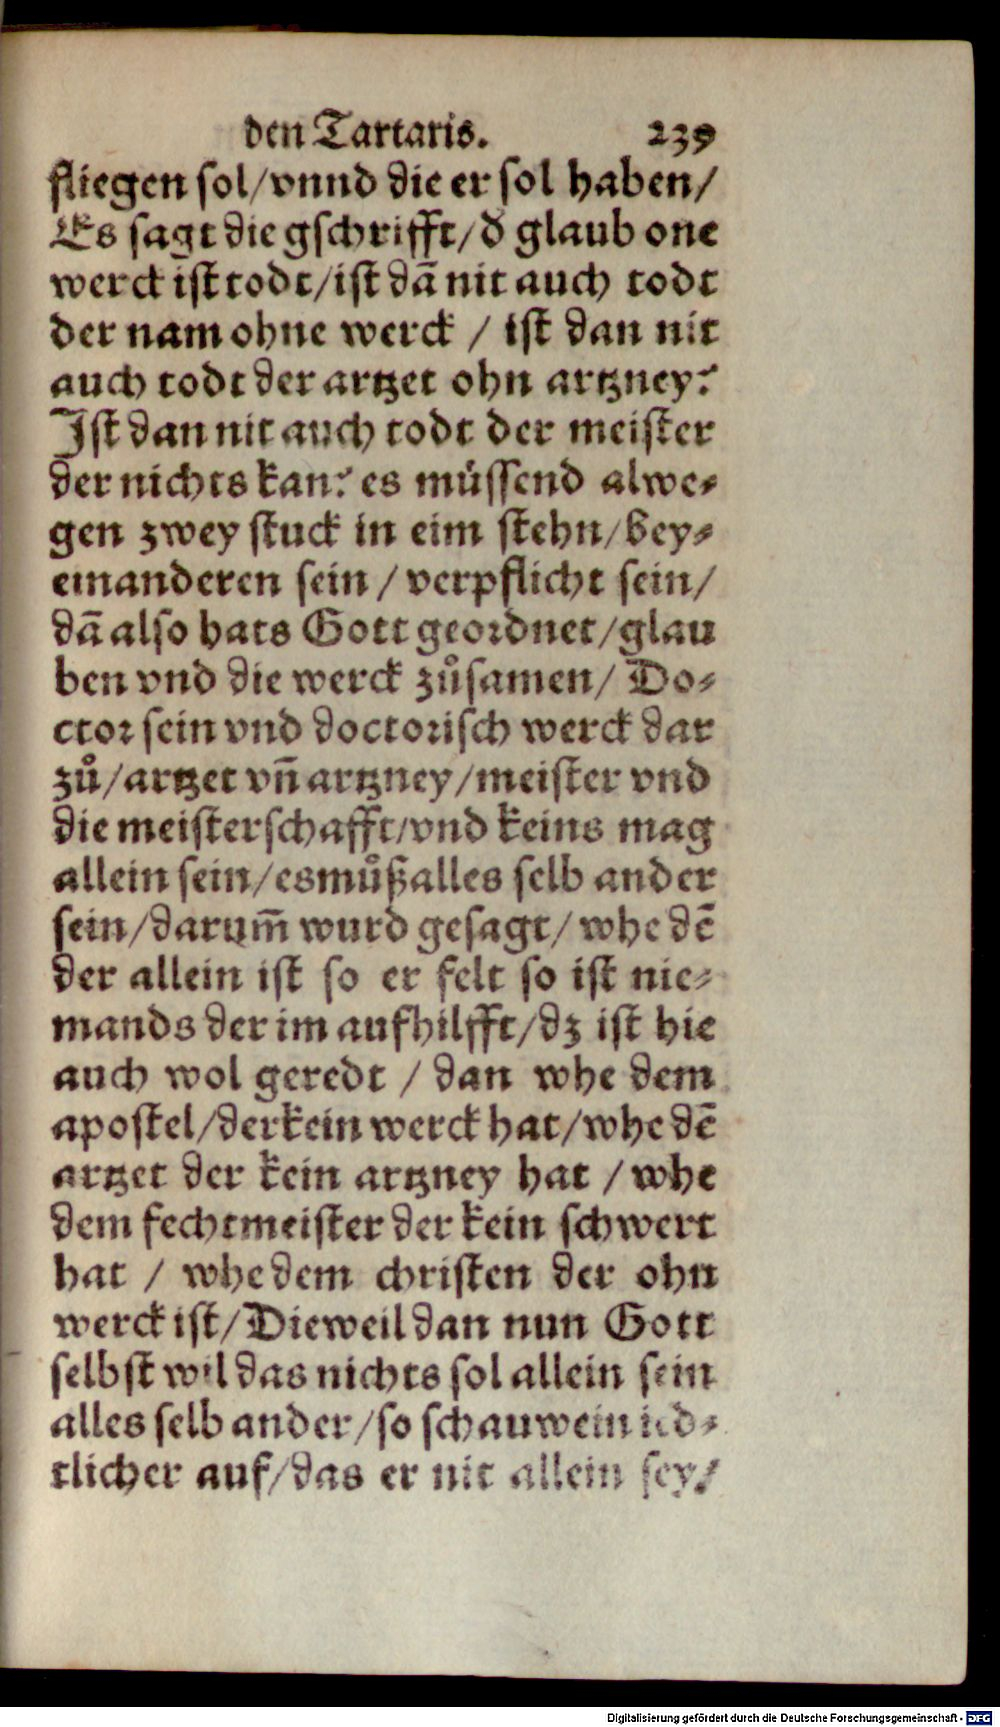 den Tartaris. 239
fliegen sol/vnnd die er sol haben/
Es sagt die gschrifft/ð glaub one
werck ist todt/ist dā nit auch todt
der nam ohne werck / ist dan nit
auch todt der artzet ohn artzney?
Ist dan nit auch todt der meister
der nichts kan? es müssend alwe-
gen zwey stuck in eim stehn/bey-
einanderen sein / verpflicht sein/
dā also hats Gott geordnet/glau
ben vnd die werck zůsamen/ Do-
ctor sein vnd doctorisch werck dar
zů/artzet vñ artzney/meister vnd
die meisterschafft/vnd keins mag
allein sein/esmůß alles selb ander
sein/darum̄ wurd gesagt/ whe dē
der allein ist so er felt so ist nie-
mands der im aufhilfft/dz ist hie
auch wol geredt / dan whe dem
apostel/der kein werck hat/whe dē
artzet der kein artzney hat / whe
dem fechtmeister der kein schwert
hat / whe dem christen der ohn
werck ist/Dieweil dan nun Gott
selbst wil das nichts sol allein sein
alles selb ander/so schauw ein ied-
tlicher auf/das er nit allein sey/
Digitalisierung gefördert durch die Deutsche Forschungsgemeinschaft - DFG